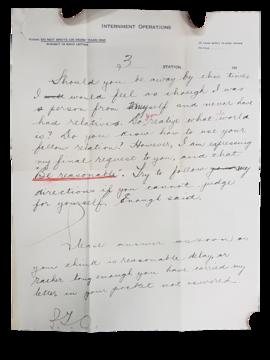 INTERNMENT OPERATIONS
3
STATION
Should you be away by this time
I would feel as though I was
a person from myself and never have
had relatives. Do you realize what world
is? Do you know how to use your
fellow relation? However, I am expressing
my final request to you, and that
"Be reasonable". Try to follow my
directions if you cannot judge
for yourself. Enough said.
Please answer as soon as
you think is reasonable delay, or
rather long enough you have carried my
letter in your pocket not answered.